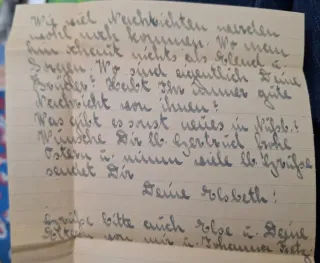 Wie viel Nachrichten werden
wohl noch kommen. Wo man
hin schaut nichts als Elend u.
Sorgen. Wo sind eigentlich Deine
Brüder? Habt Ihr immer gute
Nachricht von ihnen?
Was gibt es sonst neues in
Wünsche Dir lb. Gertrud frohe
Ostern u. nimm viele lb. Grüße
sendet Dir
Deine Elsbeth!
Grüße bitte auch Else u. Deine
Eltern von mir u. Johanna